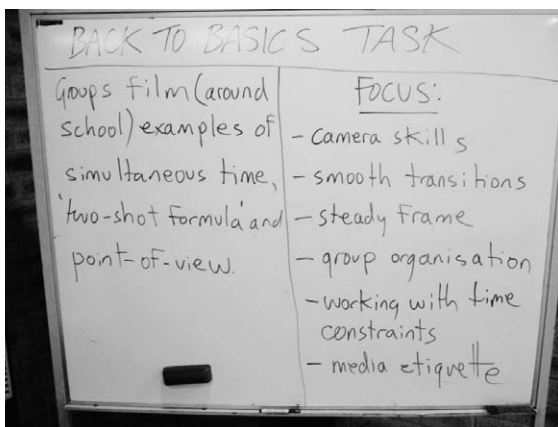 BACK TO BASICS TASK
Groups film (around
school) examples of
simultaneous time,
'two-shot formula' and
point-of-view.
FOCUS:
- camera skills
- smooth transitions
- steady frame
- group organisation
- working with time
constraints
- media etiquette